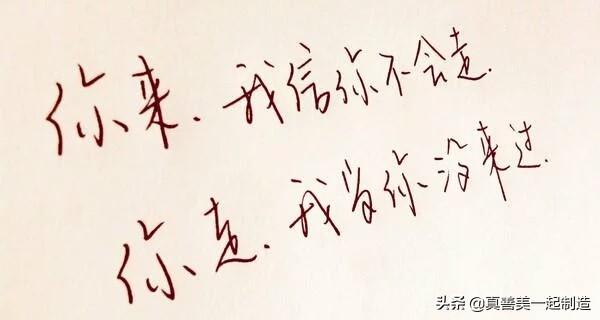 你来.我信你不会走.
你走.我当你没来过.
头条 @真善美一起制造